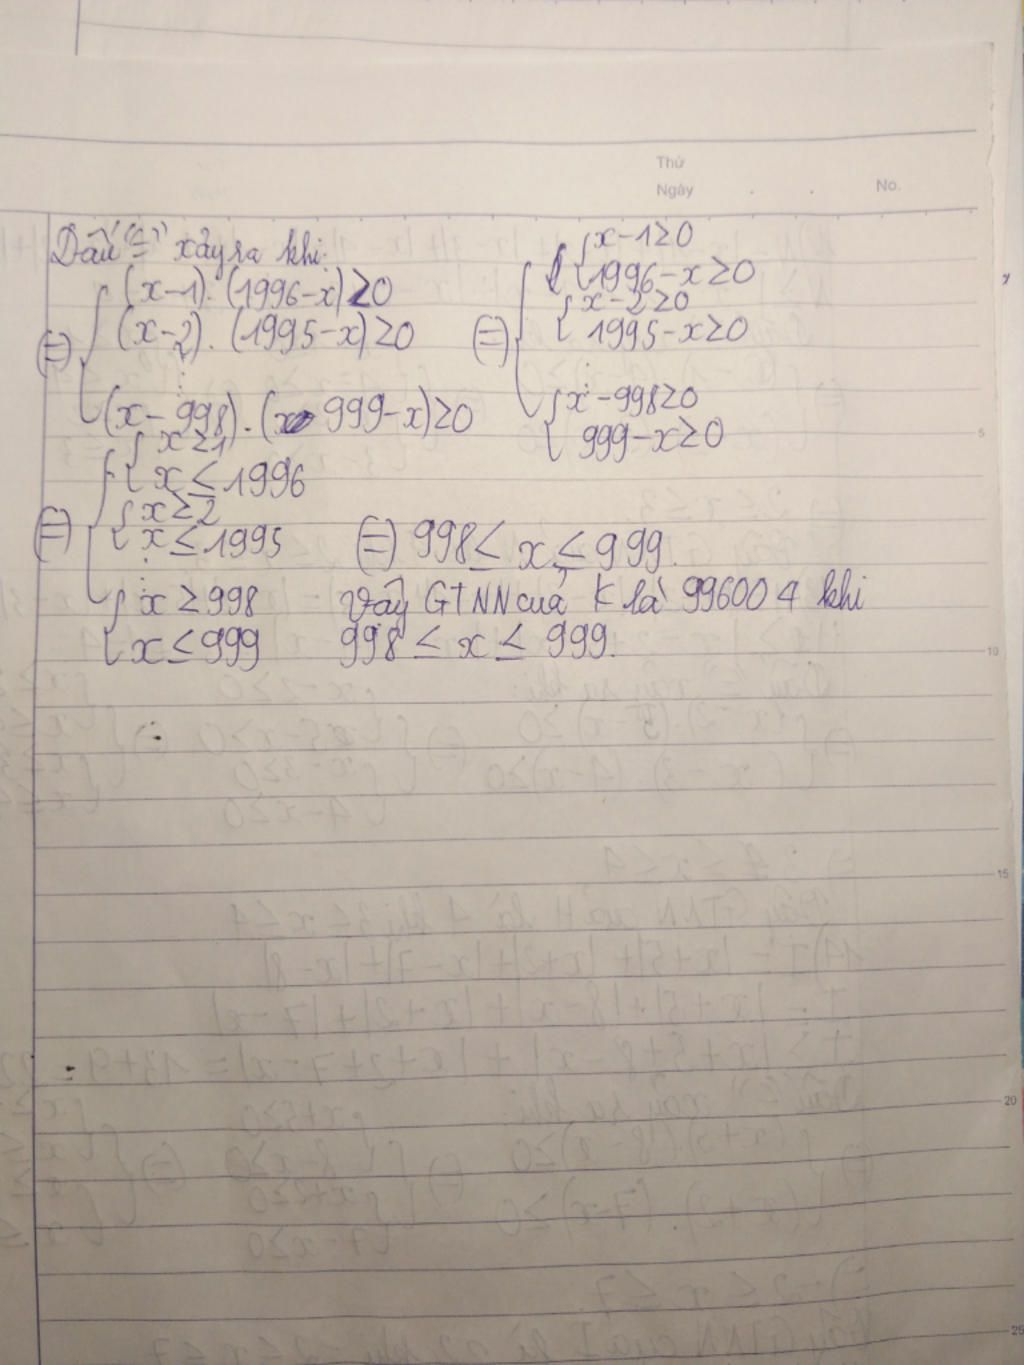 Thứ
Ngày . . No.
Dấu "=" xảy ra khi:
(=) { (x-1). (1996-x) ≥ 0
(x-2). (1995-x) ≥ 0
⋮
(x-998). (999-x) ≥ 0
(=) { { x-1 ≥ 0
1996-x ≥ 0
{ x-2 ≥ 0
1995-x ≥ 0
⋮
{ x-998 ≥ 0
999-x ≥ 0
(=) { { x ≥ 1
x ≤ 1996
{ x ≥ 2
x ≤ 1995
⋮
{ x ≥ 998
x ≤ 999
(=) 998 ≤ x ≤ 999.
Vậy GTNN của K là 996004 khi
998 ≤ x ≤ 999.
5
10
15
20
25